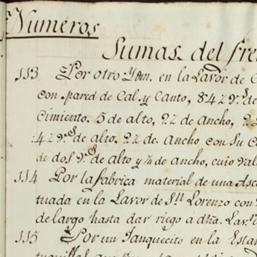 Numeros
Sumas del fre
113 Por otro Ytem. en la Lavor de
con pared de Cal y Canto, 84 2
Cimiento. 5 de alto, 2 2 de Ancho,
de alto. 2 2 de Ancho con su
de dos de alto y de ancho, cuio val
114 Por la fabrica material de una
tuada en la Lavor de Sn. Lorenzo con
de largo hasta dar riego a dha. Lavr.
115 Por un Tanquecito en la Estan